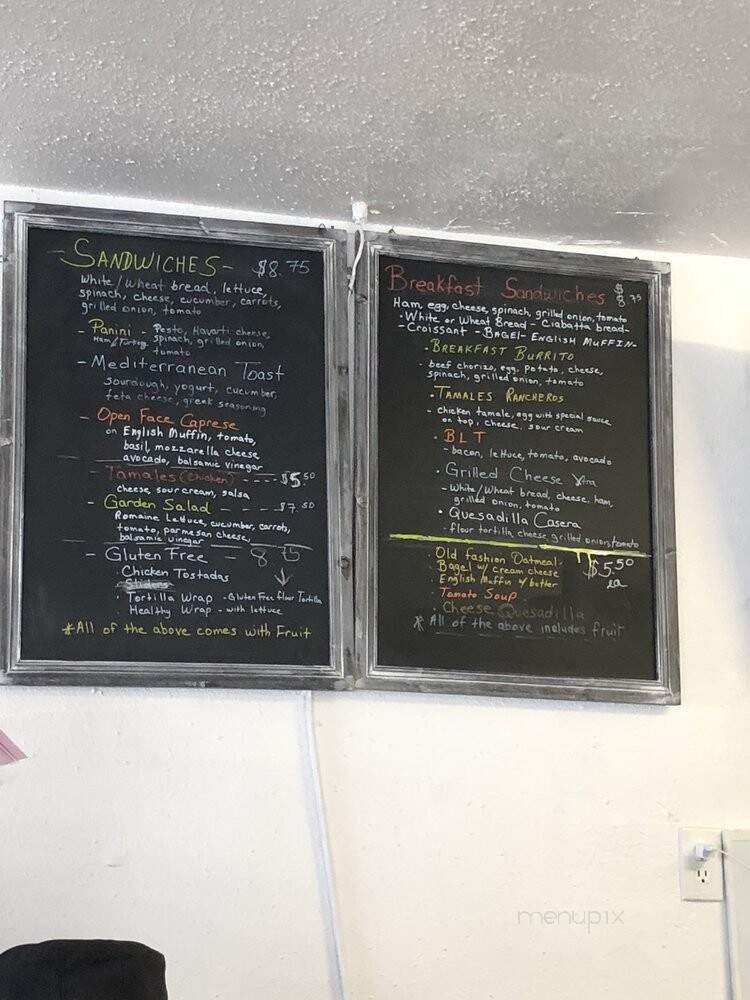 SANDWICHES - $8.75
White/Wheat bread, lettuce,
spinach, cheese, cucumber, carrots,
grilled onion, tomato
- Panini - Pesto, Havarti cheese,
Ham/Turkey spinach, grilled onion,
tomato
- Mediterranean Toast
sourdough, yogurt, cucumber,
feta cheese, greek seasoning
- Open Face Caprese
on English Muffin, tomato,
basil, mozzarella cheese
avocado, balsamic vinegar
- Tamales (chicken) ---- $5.50
cheese, sour cream, salsa
- Garden Salad ---- $7.50
Romaine Lettuce, cucumber, carrots,
tomato, parmesan cheese,
balsamic vinegar
- Gluten Free - 8 75
· Chicken Tostadas
Sliders
· Tortilla Wrap - Gluten Free flour Tortilla
Healthy Wrap - with lettuce
*All of the above comes with Fruit
Breakfast Sandwiches $8.75
Ham, egg, cheese, spinach, grilled onion, tomato
· White or Wheat Bread - Ciabatta bread -
- Croissant - BAGEL - ENGLISH MUFFIN -
· BREAKFAST BURRITO
- beef chorizo, egg, potato, cheese,
spinach, grilled onion, tomato
· TAMALES RANCHEROS
- chicken tamale, egg with special sauce
on top, cheese, sour cream
· BLT
- bacon, lettuce, tomato, avocado
· Grilled Cheese
- White/Wheat bread, cheese, ham,
grilled onion, tomato
· Quesadilla Casera
- flour tortilla, cheese, grilled onion, tomato
· Old fashion Oatmeal
· Bagel w/ cream cheese $5.50
· English Muffin w/ butter ea
· Tomato Soup
· Cheese Quesadilla
* All of the above includes fruit
menupix